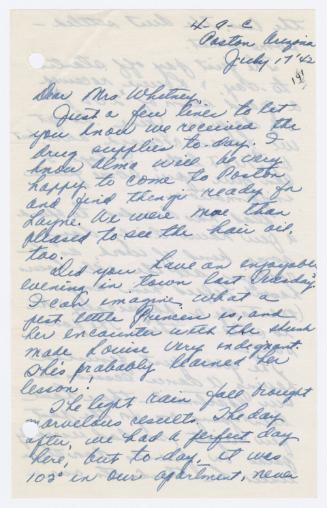 4-9-C
Poston Arizona
July 17 '42
Dear Mrs Whitney,
Just a few lines to let
you know we received the
drug supplies to-day. I
know Alma will be very
happy to come to Poston
and find things ready for
Layne. We were more than
pleased to see the hair oil,
too.
Did you have an enjoyable
evening in town last Tuesday?
I can imagine what a
pest little Princess is, and
her encounter with the skunk
made Louise very indignant.
She's probably learned her
lesson!
The light rain fall brought
marvelous results. The day
after, we had a perfect day
here, but to-day, it was
102° in our apartment, never